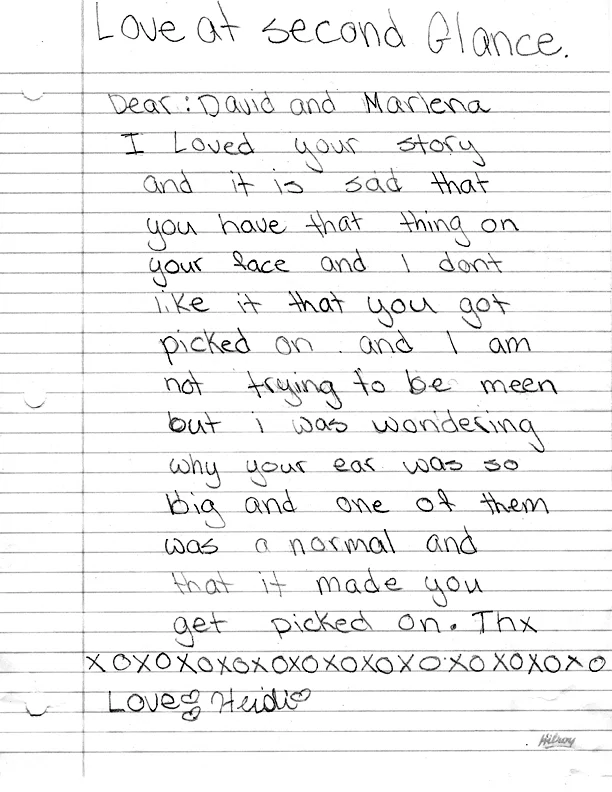 Love at second Glance.
Dear: David and Marlena
I Loved your story
and it is sad that
you have that thing on
your face and I dont
like it that you got
picked on. and I am
not trying to be meen
but i was wondering
why your ear was so
big and one of them
was a normal and
that it made you
get picked on. Thx
XOXOXOXOXOXOXOXOXOXOXOXOXOXO
Love Heidi